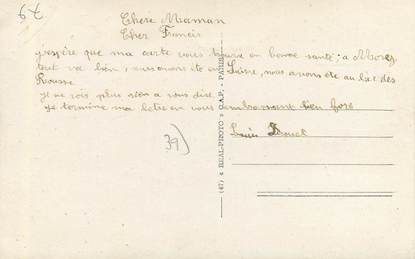 6€
Chère Maman
Cher Francis
j'espère que ma carte vous trouve en bonne santé; a Morez
tout va bien, nous avons été en Suisse, nous avons été au lac des
Rousse
je ne vois plus rien a vous dire
je termine ma letre en vous embrassant bien fort
Louis
39)
(47) « REAL-PHOTO » C.A.P. - PARIS